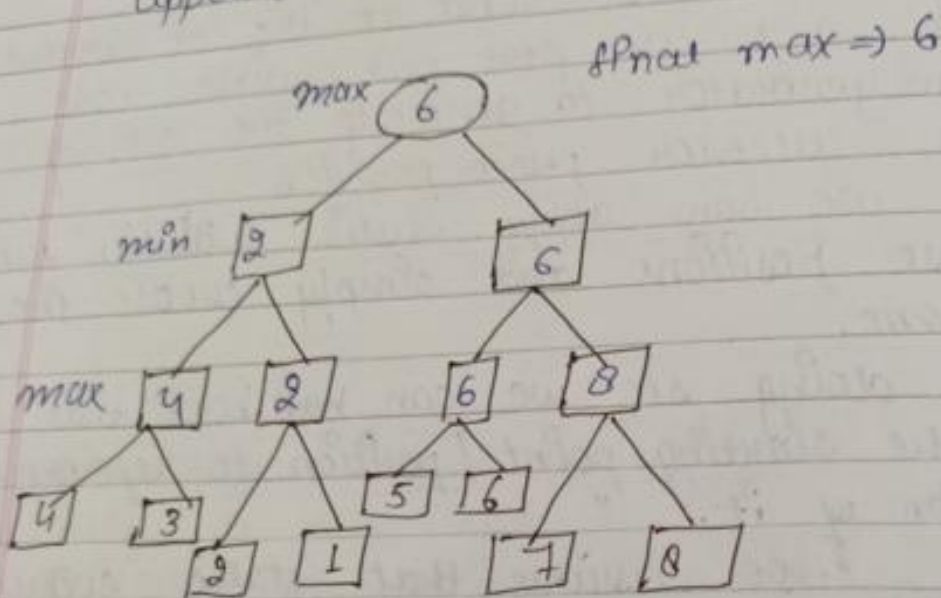 final max => 6
max 6
min 2 6
max 4 2 6 8
4 3 2 1 5 6 7 8